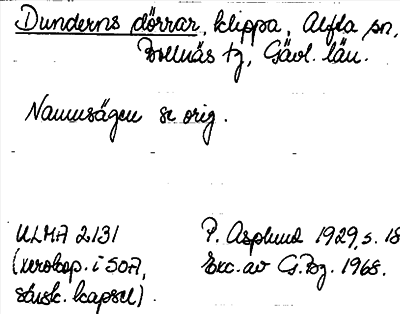 Dunderns dörrar, klippa, Alfta sn,
Bollnäs tg, Gävl. län.
Namnsägen se orig.
ULMA 2131
(xerokop. i SOA,
stusk. kapsel).
P. Asplund 1929, s. 18
Exc. av G. Bg. 1968.